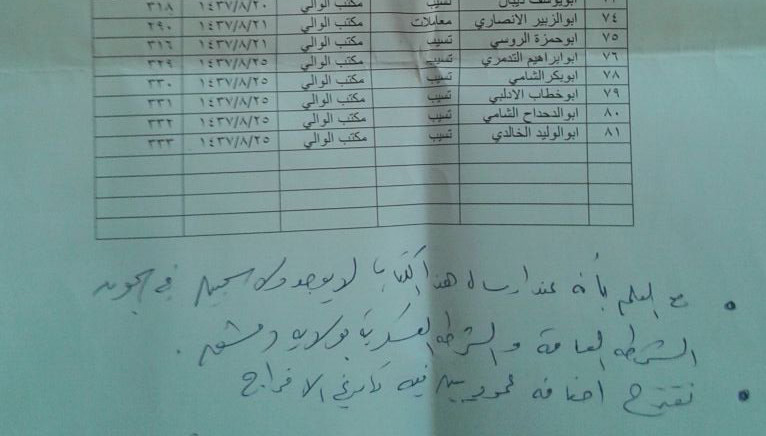 ٧٣ ابويوسف ديبان تسيب مكتب الوالي ١٤٣٧/٨/٢٠ ٣١٨
٧٤ ابوالزبير الانصاري معاملات مكتب الوالي ١٤٣٧/٨/٢١ ٢٩٠
٧٥ ابوحمزة الروسي تسيب مكتب الوالي ١٤٣٧/٨/٢١ ٣١٦
٧٦ ابوابراهيم التدمري تسيب مكتب الوالي ١٤٣٧/٨/٢٥ ٣٢٩
٧٨ ابوبكر الشامي تسيب مكتب الوالي ١٤٣٧/٨/٢٥ ٣٣٠
٧٩ ابوخطاب الادلبي تسيب مكتب الوالي ١٤٣٧/٨/٢٥ ٣٣١
٨٠ ابوالدحداح الشامي تسيب مكتب الوالي ١٤٣٧/٨/٢٥ ٣٣٢
٨١ ابوالوليد الخالدي تسيب مكتب الوالي ١٤٣٧/٨/٢٥ ٣٣٣
• مع العلم بأنه عند ارسال هذا الكتاب لا يوجد ولا سجين في سجون
الشرطة العامة والشرطة العسكرية بولاية دمشق .
• نقترح اضافة عمود يبين فيه تاريخ الافراج